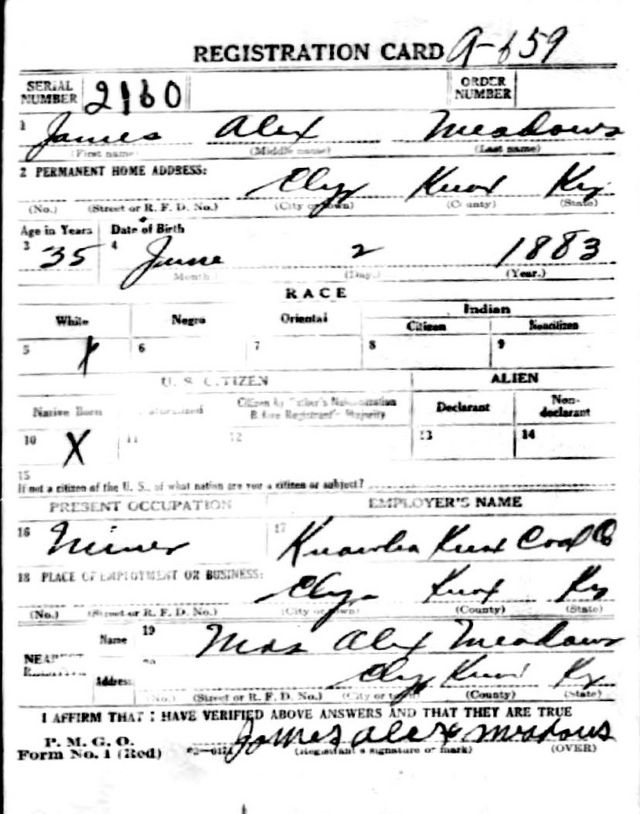 REGISTRATION CARD A-659
SERIAL NUMBER 2160 ORDER NUMBER
1 James Alex Meadows
(First name) (Middle name) (Last name)
2 PERMANENT HOME ADDRESS:
Knox Ky
(No.) (Street or R. F. D. No.) (City or town) (County) (State)
Age in Years Date of Birth
3 35 4 June 2 1883
(Month.) (Day.) (Year.)
RACE
White Negro Oriental Indian
Citizen Noncitizen
5 X 6 7 8 9
U. S. CITIZEN ALIEN
Native Born Naturalized Citizen by Father's Naturalization Before Registrant's Majority Declarant Non-declarant
10 X 11 12 13 14
15
If not a citizen of the U. S., of what nation are you a citizen or subject?
PRESENT OCCUPATION EMPLOYER'S NAME
16 Miner 17 Knox Coal Co
18 PLACE OF EMPLOYMENT OR BUSINESS:
Knox Ky
(No.) (Street or R. F. D. No.) (City or town) (County) (State)
NEAREST RELATIVE Name 19 Mrs Alex Meadows
Address Knox Ky
(No.) (Street or R. F. D. No.) (City or town) (County) (State)
I AFFIRM THAT I HAVE VERIFIED ABOVE ANSWERS AND THAT THEY ARE TRUE
P. M. G. O.
Form No. 1 (Red) James Alex Meadows
(Registrant's signature or mark) (OVER)